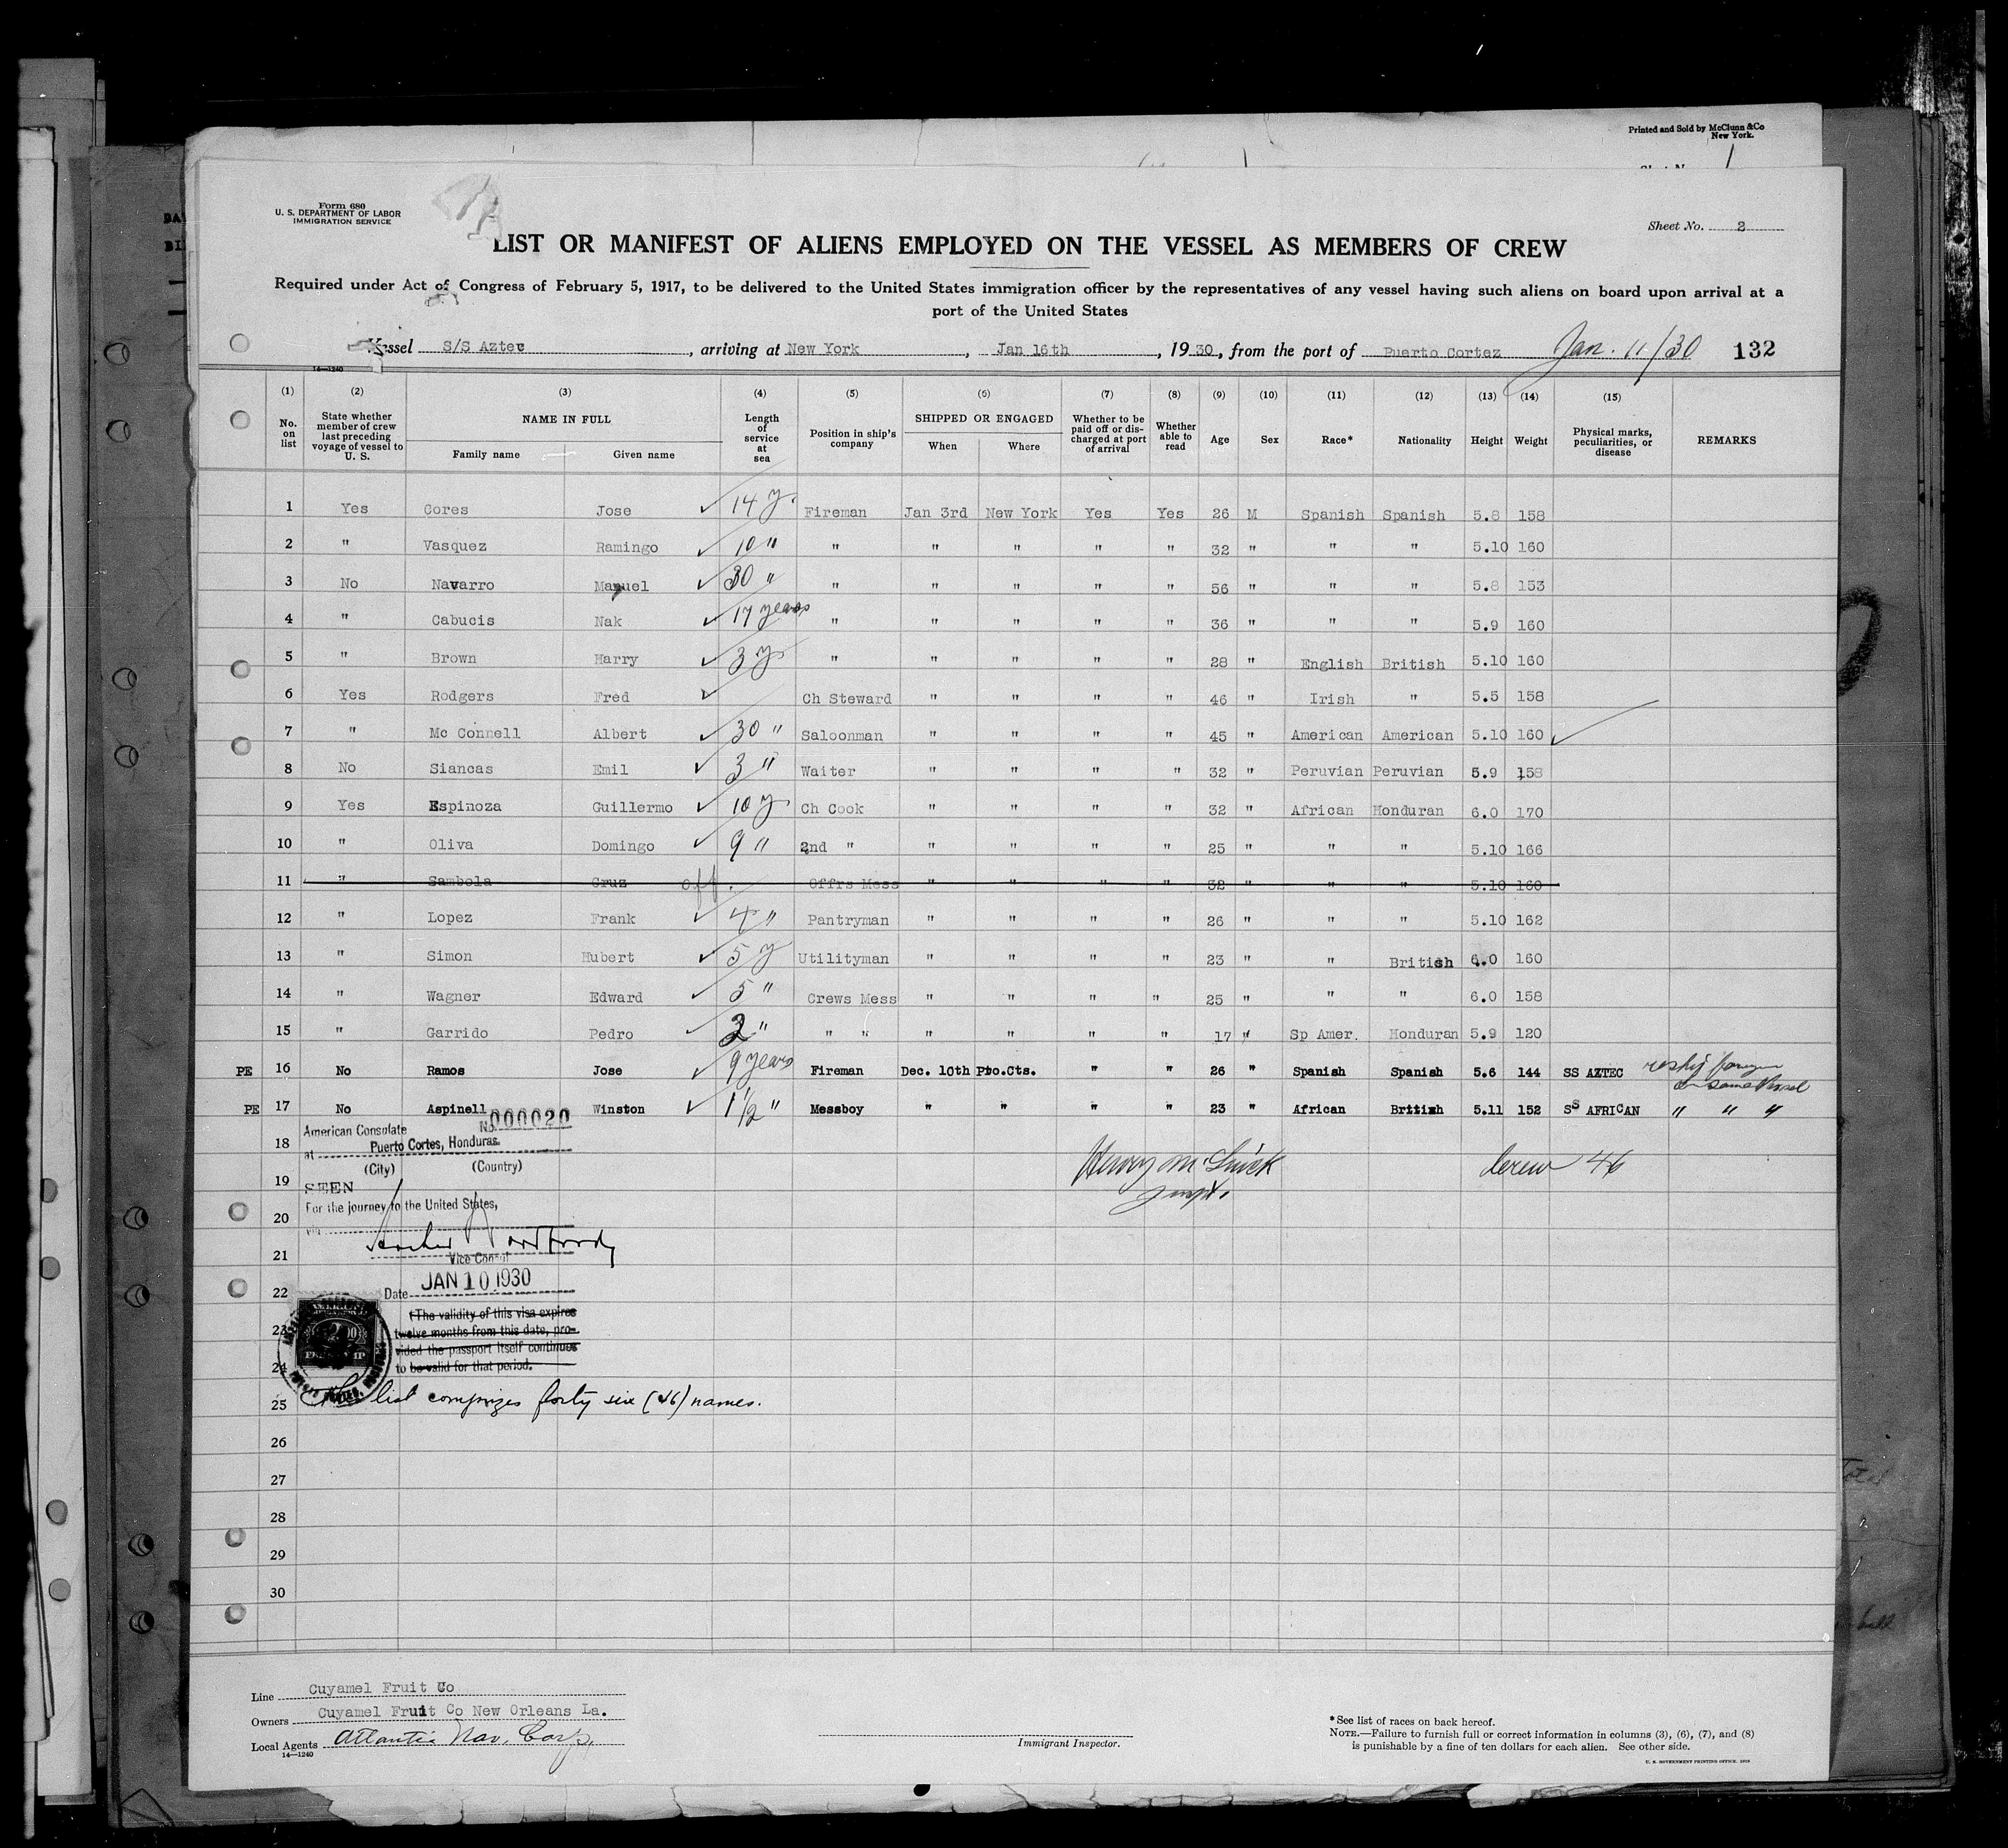 Printed and Sold by McClunn &Co
New York.
1
Form 680
U. S. DEPARTMENT OF LABOR
IMMIGRATION SERVICE
Sheet No. 2
LIST OR MANIFEST OF ALIENS EMPLOYED ON THE VESSEL AS MEMBERS OF CREW
Required under Act of Congress of February 5, 1917, to be delivered to the United States immigration officer by the representatives of any vessel having such aliens on board upon arrival at a
port of the United States
Vessel S/S Aztec , arriving at New York , Jan 16th , 19 30, from the port of Puerto Cortez Jan. 11/30 132
14—1240
(1) (2) (3) (4) (5) (6) (7) (8) (9) (10) (11) (12) (13) (14) (15)
No. on list State whether member of crew last preceding voyage of vessel to U. S. NAME IN FULL Family name Given name Length of service at sea Position in ship's company SHIPPED OR ENGAGED When Where Whether to be paid off or discharged at port of arrival Whether able to read Age Sex Race* Nationality Height Weight Physical marks, peculiarities, or disease REMARKS
1 Yes Cores Jose ✓ 14 y. Fireman Jan 3rd New York Yes Yes 26 M Spanish Spanish 5.8 158
2 " Vasquez Ramingo ✓ 10 " " " " " " 32 " " " 5.10 160
3 No Navarro Manuel ✓ 30 " " " " " " 56 " " " 5.8 153
4 " Cabucis Nak ✓ 17 years " " " " " 36 " " " 5.9 160
5 " Brown Harry ✓ 3 y " " " " " 28 " English British 5.10 160
6 Yes Rodgers Fred ✓ Ch Steward " " " " 46 " Irish " 5.5 158
7 " Mc Connell Albert ✓ 30 " Saloonman " " " " 45 " American American 5.10 160 ✓
8 No Siancas Emil ✓ 3 " Waiter " " " " 32 " Peruvian Peruvian 5.9 158
9 Yes Espinoza Guillermo ✓ 10 y Ch Cook " " " " 32 " African Honduran 6.0 170
10 " Oliva Domingo ✓ 9 " 2nd " " " " " 25 " " " 5.10 166
11 " Sambola Cruz off. Offrs Mess " " " " 32 " " " 5.10 160
12 " Lopez Frank ✓ 4 " Pantryman " " " " 26 " " " 5.10 162
13 " Simon Hubert ✓ 5 y Utilityman " " " " 23 " " British 6.0 160
14 " Wagner Edward ✓ 5 " Crews Mess " " " " 25 " " " 6.0 158
15 " Garrido Pedro ✓ 2 " " " " " " " 17 " Sp Amer. Honduran 5.9 120
PE 16 No Ramos Jose ✓ 9 years Fireman Dec. 10th Pto.Cts. " " 26 " Spanish Spanish 5.6 144 SS AZTEC reship foreign
on same vessel
PE 17 No Aspinell Winston ✓ 1 1/2 " Messboy " " " " 23 " African British 5.11 152 SS AFRICAN " " "
American Consulate No. 000020
18 at Puerto Cortes, Honduras.
(City) (Country)
crew 46
19 SEEN
For the journey to the United States,
20 via
21
Vice Consul
22 Date JAN 10 1930
(The validity of this visa expires
23 twelve months from this date, pro-
vided the passport itself continues
24 to be valid for that period.
25 This list comprizes forty six (46) names.
26
27
28
29
30
Line Cuyamel Fruit Co
Owners Cuyamel Fruit Co New Orleans La.
Local Agents Atlantic Nav. Corp.
14—1240
Immigrant Inspector.
*See list of races on back hereof.
NOTE.—Failure to furnish full or correct information in columns (3), (6), (7), and (8)
is punishable by a fine of ten dollars for each alien. See other side.